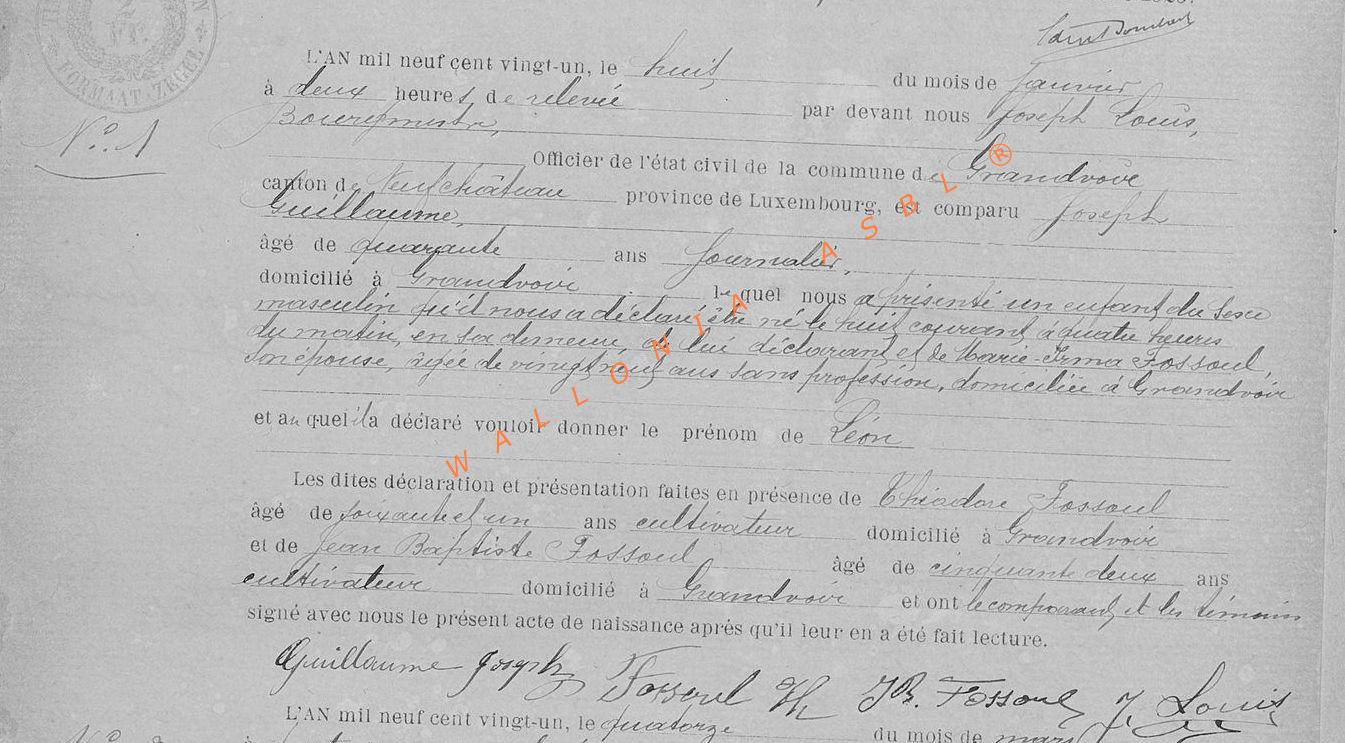 FORMAAT-ZEGEL
N° 1
L'AN mil neuf cent vingt-un, le huit du mois de janvier
à deux heures de relevée par devant nous Joseph Louis,
Bourgmestre,
Officier de l'état civil de la commune de Grandvoir
canton de Neufchâteau province de Luxembourg, est comparu Joseph
Guillaume,
âgé de quarante ans journalier,
domicilié à Grandvoir lequel nous a présenté un enfant du sexe
masculin qu'il nous a déclaré être né le huit courant, à quatre heures
du matin, en sa demeure, de lui déclarant et de Marie-Irma Fossoul,
son épouse, agée de vingt neuf ans sans profession, domiciliée à Grandvoir
et auquel il a déclaré vouloir donner le prénom de Léon
Les dites déclaration et présentation faites en présence de Théodore Fossoul
âgé de soixante et un ans cultivateur domicilié à Grandvoir
et de Jean Baptiste Fossoul âgé de cinquante deux ans
cultivateur domicilié à Grandvoir et ont le comparant et les témoins
signé avec nous le présent acte de naissance aprés qu'il leur en a été fait lecture.
Guillaume Joseph Fossoul Th JB. Fossoul J. Louis
L'AN mil neuf cent vingt-un, le quatorze du mois de mars
WALLONIA ASBL ®